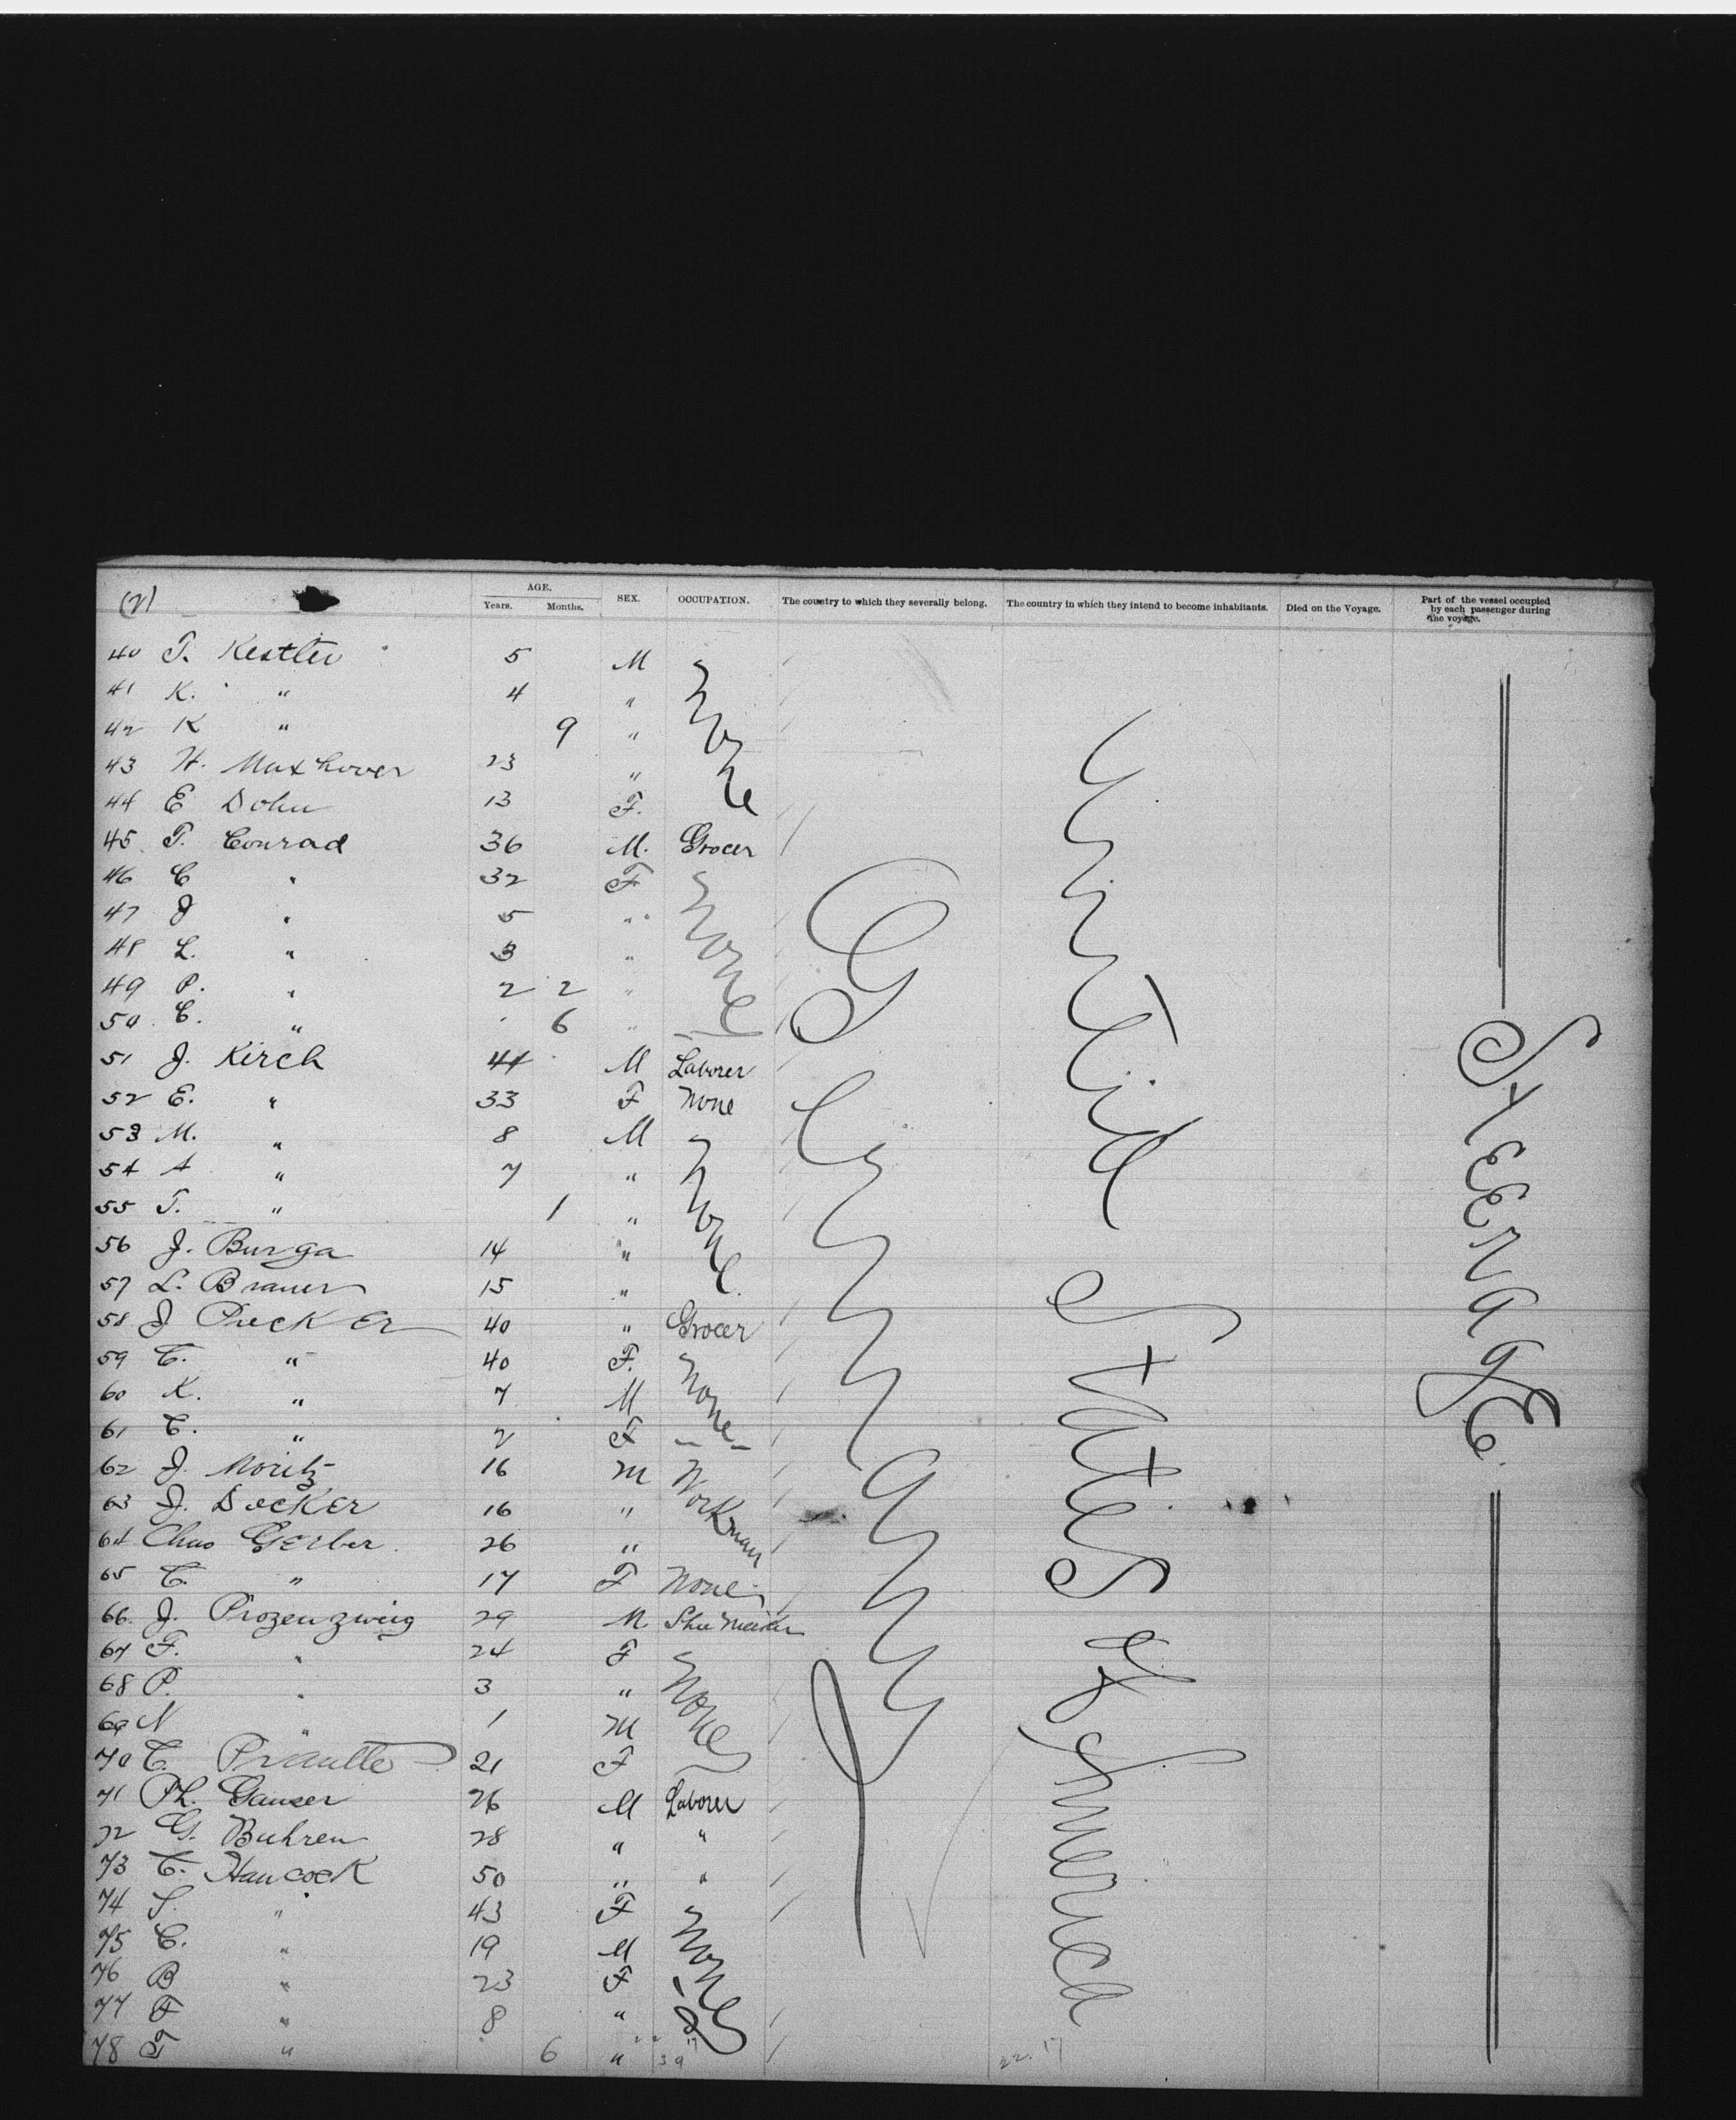 (2)
AGE.
Years. Months. SEX. OCCUPATION. The country to which they severally belong. The country in which they intend to become inhabitants. Died on the Voyage. Part of the vessel occupied by each passenger during the voyage.
40 T. Kestler 5 M None
41 K. " 4 "
42 K " 9 "
43 H. Muxhover 23 "
44 E Dohn 13 F.
45 T. Conrad 36 M. Grocer
46 C " 32 F None
47 J " 5 "
48 L. " 3 "
49 P. " 2 2 "
50 C. " 6 "
51 J. Kirch 44 M Laborer
52 E. " 33 F None
53 M. " 8 M None
54 A " 7 "
55 T. " 1 "
56 J. Burga 14 "
57 L. Brauer 15 "
58 J Precker 40 " Grocer
59 C. " 40 F. None
60 K. " 7 M
61 C. " 2 F
62 J. Moritz 16 M Workman
63 J. Decker 16 "
64 Chas Gerber 26 "
65 C. " 17 F None
66 J. Prozenzweig 29 M Shu Meaker
67 F. " 24 F None
68 P. " 3 "
69 N " 1 M
70 C. Prautte 21 F
71 Ph. Gauser 26 M Laborer
72 G. Buhren 28 " "
73 C. Hancock 50 " "
74 S. " 43 F None
75 C. " 19 M
76 B " 23 F
77 F " 8 "
78 T " 6 "
39
22. 17
Germany
United States of America
Steerage